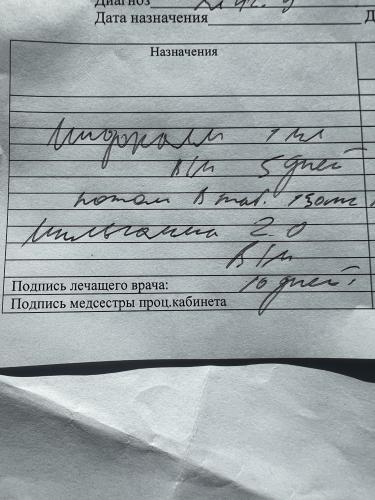 Диагноз
Дата назначения
Назначения
Мидокалм 1 мл
в/м 5 дней
потом в таб. 150мг
Мильгамма 2.0
в/м
Подпись лечащего врача: 10 дней
Подпись медсестры проц.кабинета